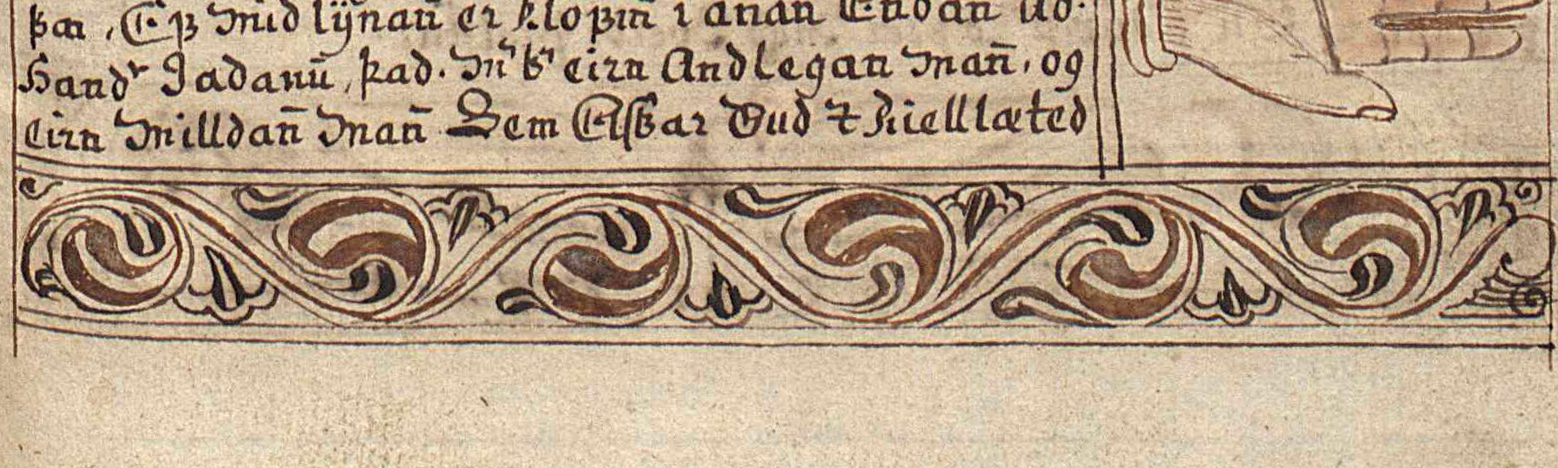 þar, Ef Midlijnan̄ er klofin̄ i anan Endan̄ ad.
Handr Jadanū, þad. Mr br eirn Andlegan Man̄, og
eirn Milldan̄ Man̄ Sem Elskar Gud & Kiellæted